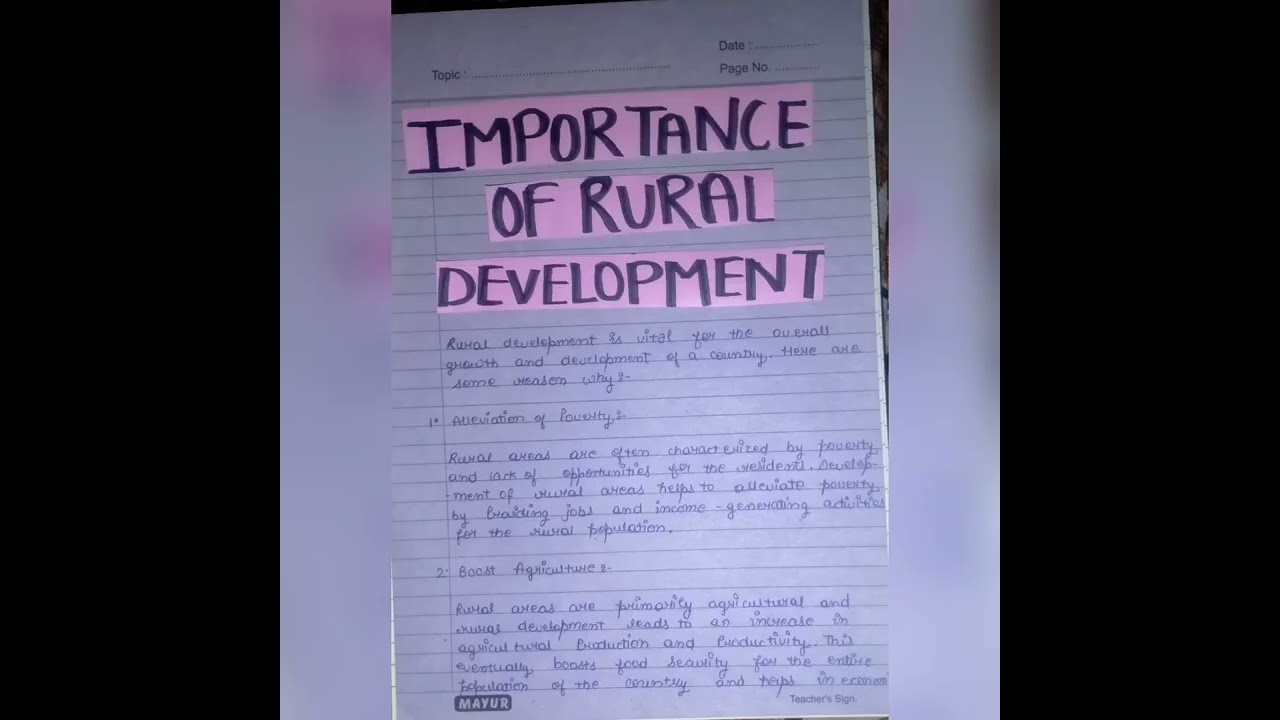 Date : ..................
Topic : ............................................................
Page No. ............
IMPORTANCE
OF RURAL
DEVELOPMENT
Rural development is vital for the overall
growth and development of a country. Here are
some reason why:-
1. Alleviation of Poverty:-
Rural areas are often characterized by poverty
and lack of opportunities for the residents. Develop-
-ment of rural areas helps to alleviate poverty
by Providing jobs and income-generating activities
for the rural population.
2. Boost Agriculture:-
Rural areas are primarily agricultural and
rural development leads to an increase in
agricultural Production and Productivity. This
eventually boosts food security for the entire
population of the country and helps in econom
MAYUR
Teacher's Sign.